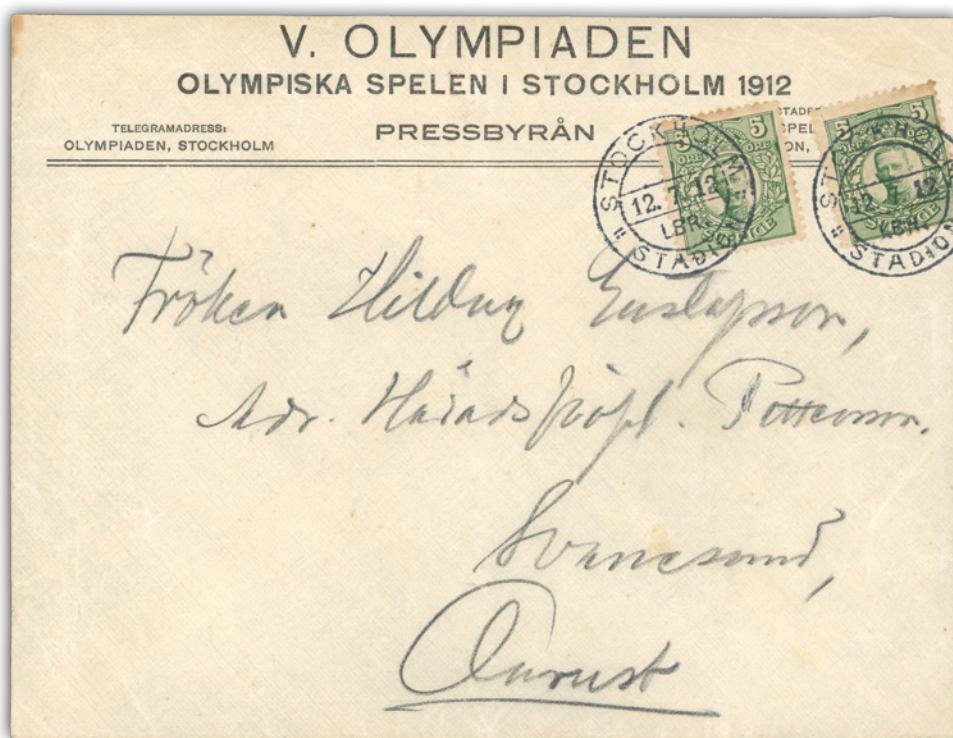 V. OLYMPIADEN
OLYMPISKA SPELEN I STOCKHOLM 1912
TELEGRAMADRESS:
OLYMPIADEN, STOCKHOLM
PRESSBYRÅN
5 5
ÖRE ÖRE
SVERIGE
STOCKHOLM
12. 7. 12
LBR.
"STADION"
5 5
ÖRE
SVERIGE
STOCKHOLM
12. 12
LBR.
"STADION
Fröken Hildur Gustafsson,
Adr. Pettersson.
Svanesund,
Orust